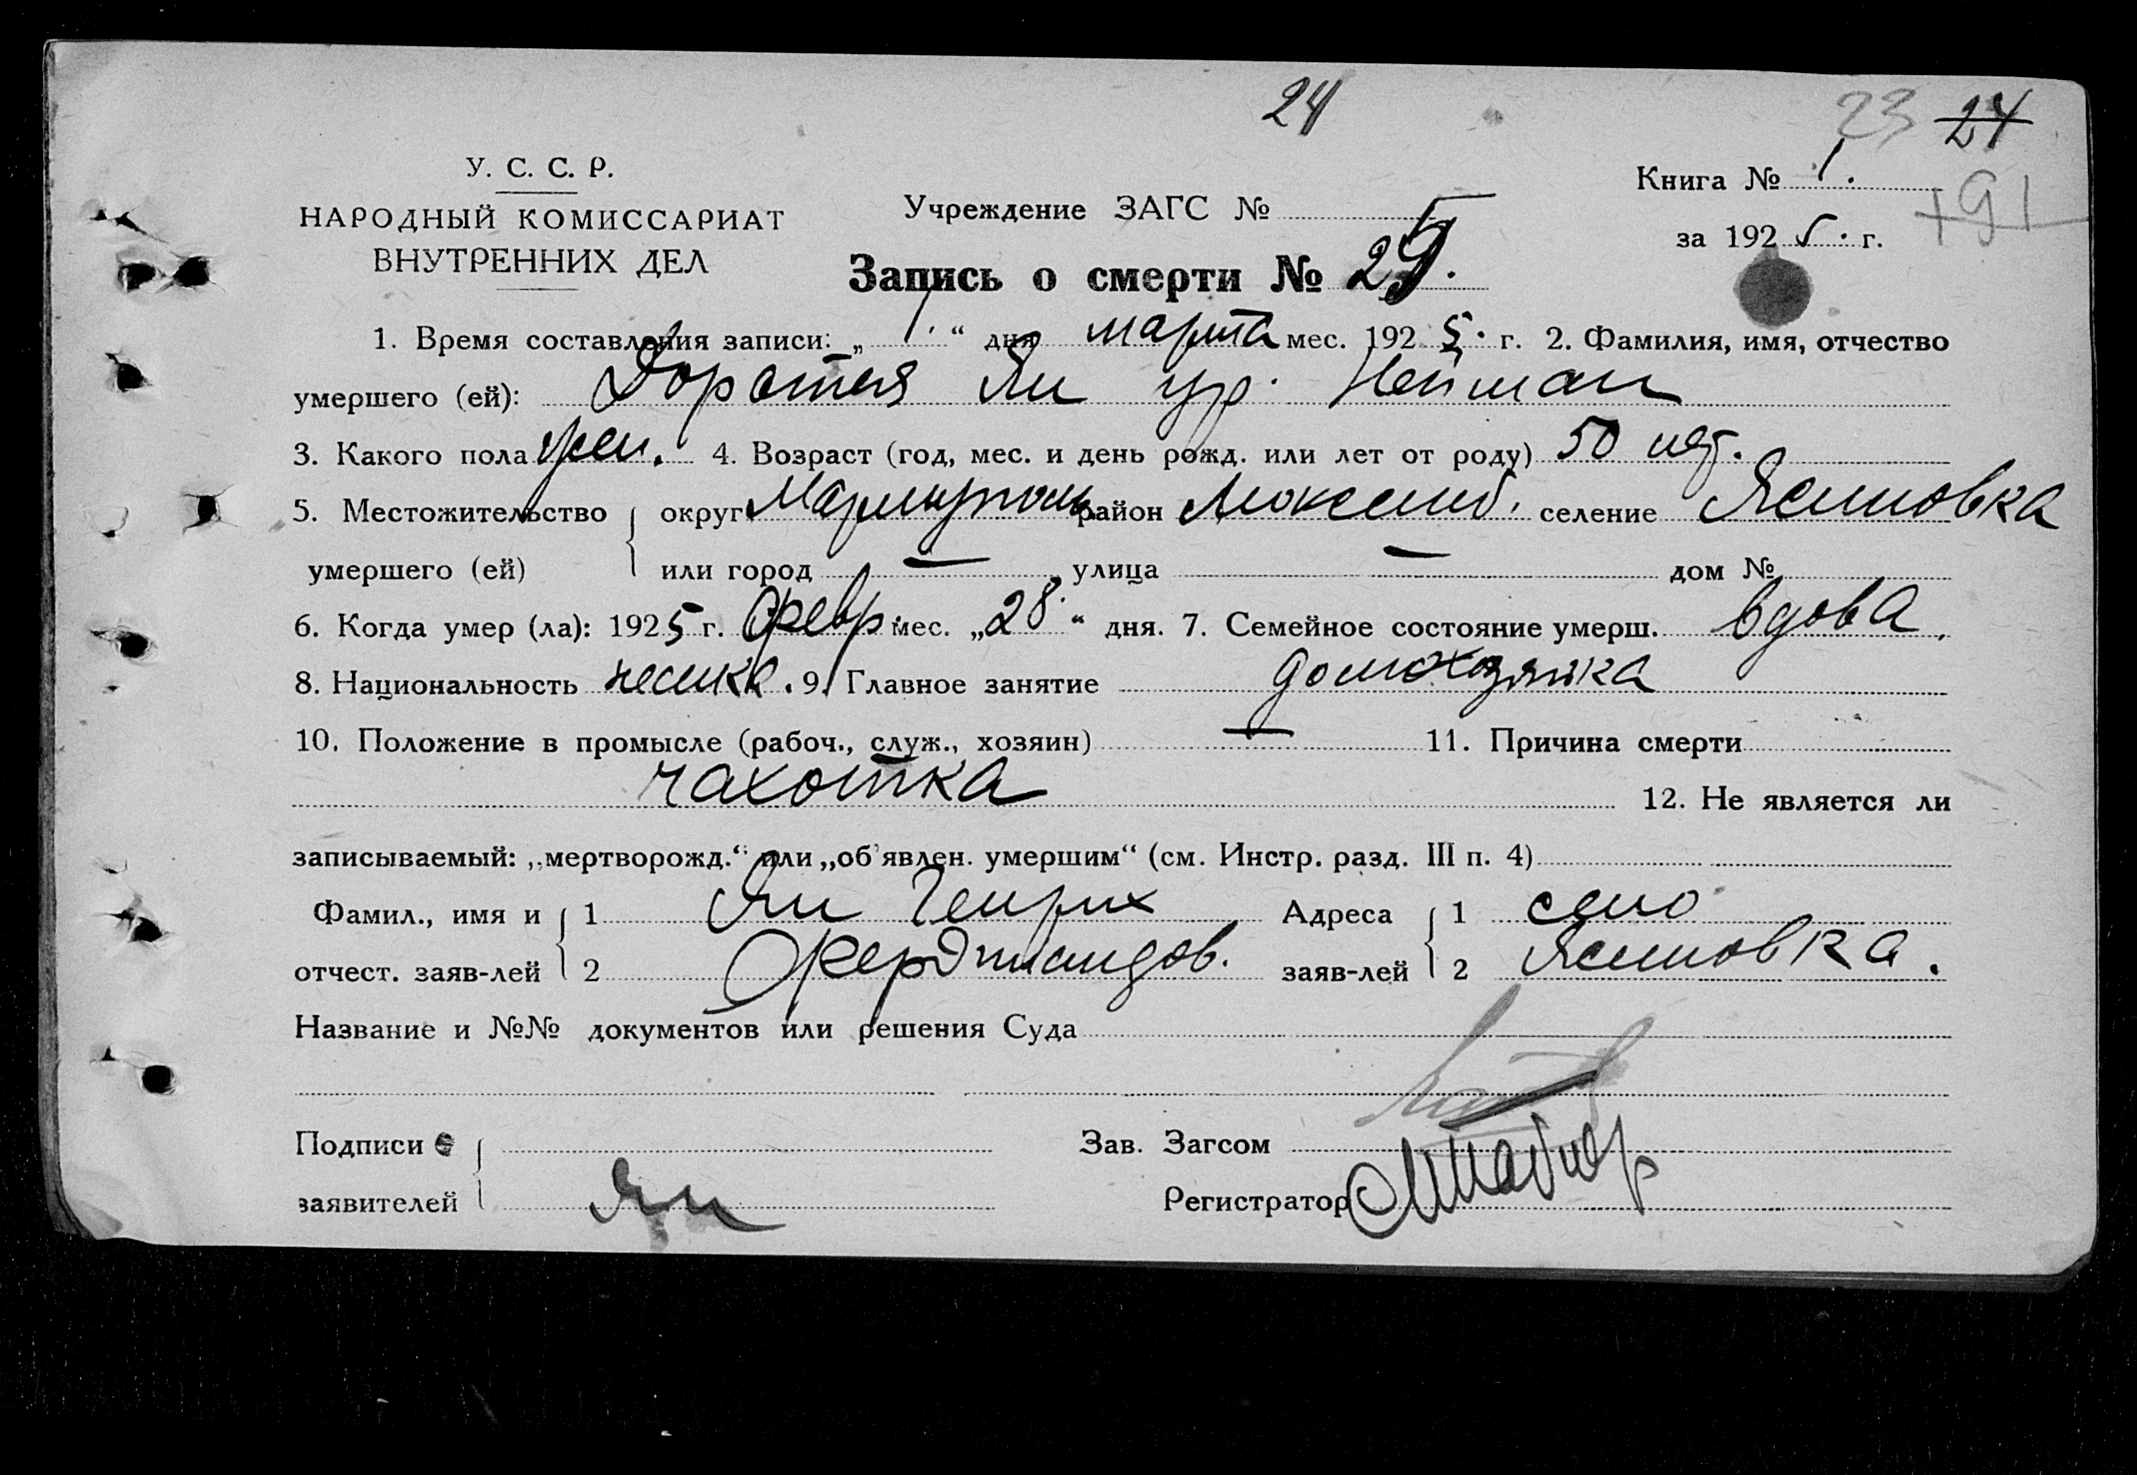 24
23 24
У. С. С. Р.
НАРОДНЫЙ КОМИССАРИАТ
ВНУТРЕННИХ ДЕЛ
Учреждение ЗАГС №
Книга № 1.
за 1925. г.
+91
Запись о смерти № 25.
1. Время составления записи: „1.“ дня марта мес. 1925. г. 2. Фамилия, имя, отчество
умершего (ей): Доротея Ян ур. Нейман
3. Какого пола жен. 4. Возраст (год, мес. и день рожд. или лет от роду) 50 лет.
5. Местожительство округ Мариуполь район Люксемб. селение Ясиновка
умершего (ей) или город — улица — дом №
6. Когда умер (ла): 1925 г. февр. мес. „28.“ дня. 7. Семейное состояние умерш. вдова.
8. Национальность немка. 9. Главное занятие домохозяйка
10. Положение в промысле (рабоч., служ., хозяин) — 11. Причина смерти
чахотка 12. Не является ли
записываемый: „мертворожд.“ или „об'явлен. умершим“ (см. Инстр. разд. III п. 4)
Фамил., имя и 1 Ян Генрих Адреса 1 село
отчест. заяв-лей 2 Фердинандов. заяв-лей 2 Ясиновка.
Название и №№ документов или решения Суда
Подписи Зав. Загсом
заявителей Ян Регистратор